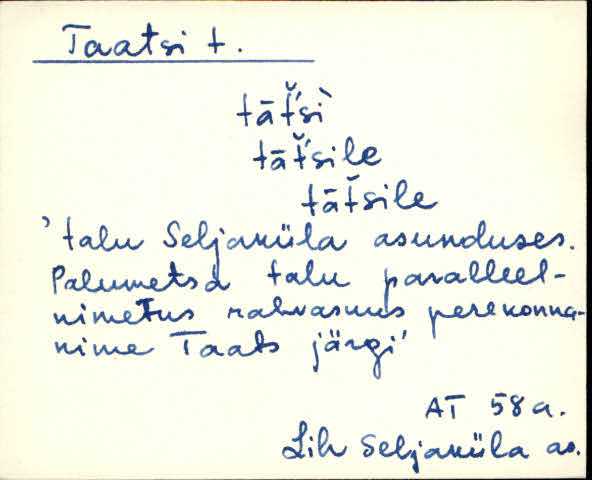 Taatsi t.
tāt̆'śì
tāt̆'śile
tāt̆śile
'talu Seljaküla asunduses.
Palumetsa talu paralleel-
nimetus rahvasuus perekonna-
nime Taats järgi'
AT 58a.
Lih Seljaküla as.